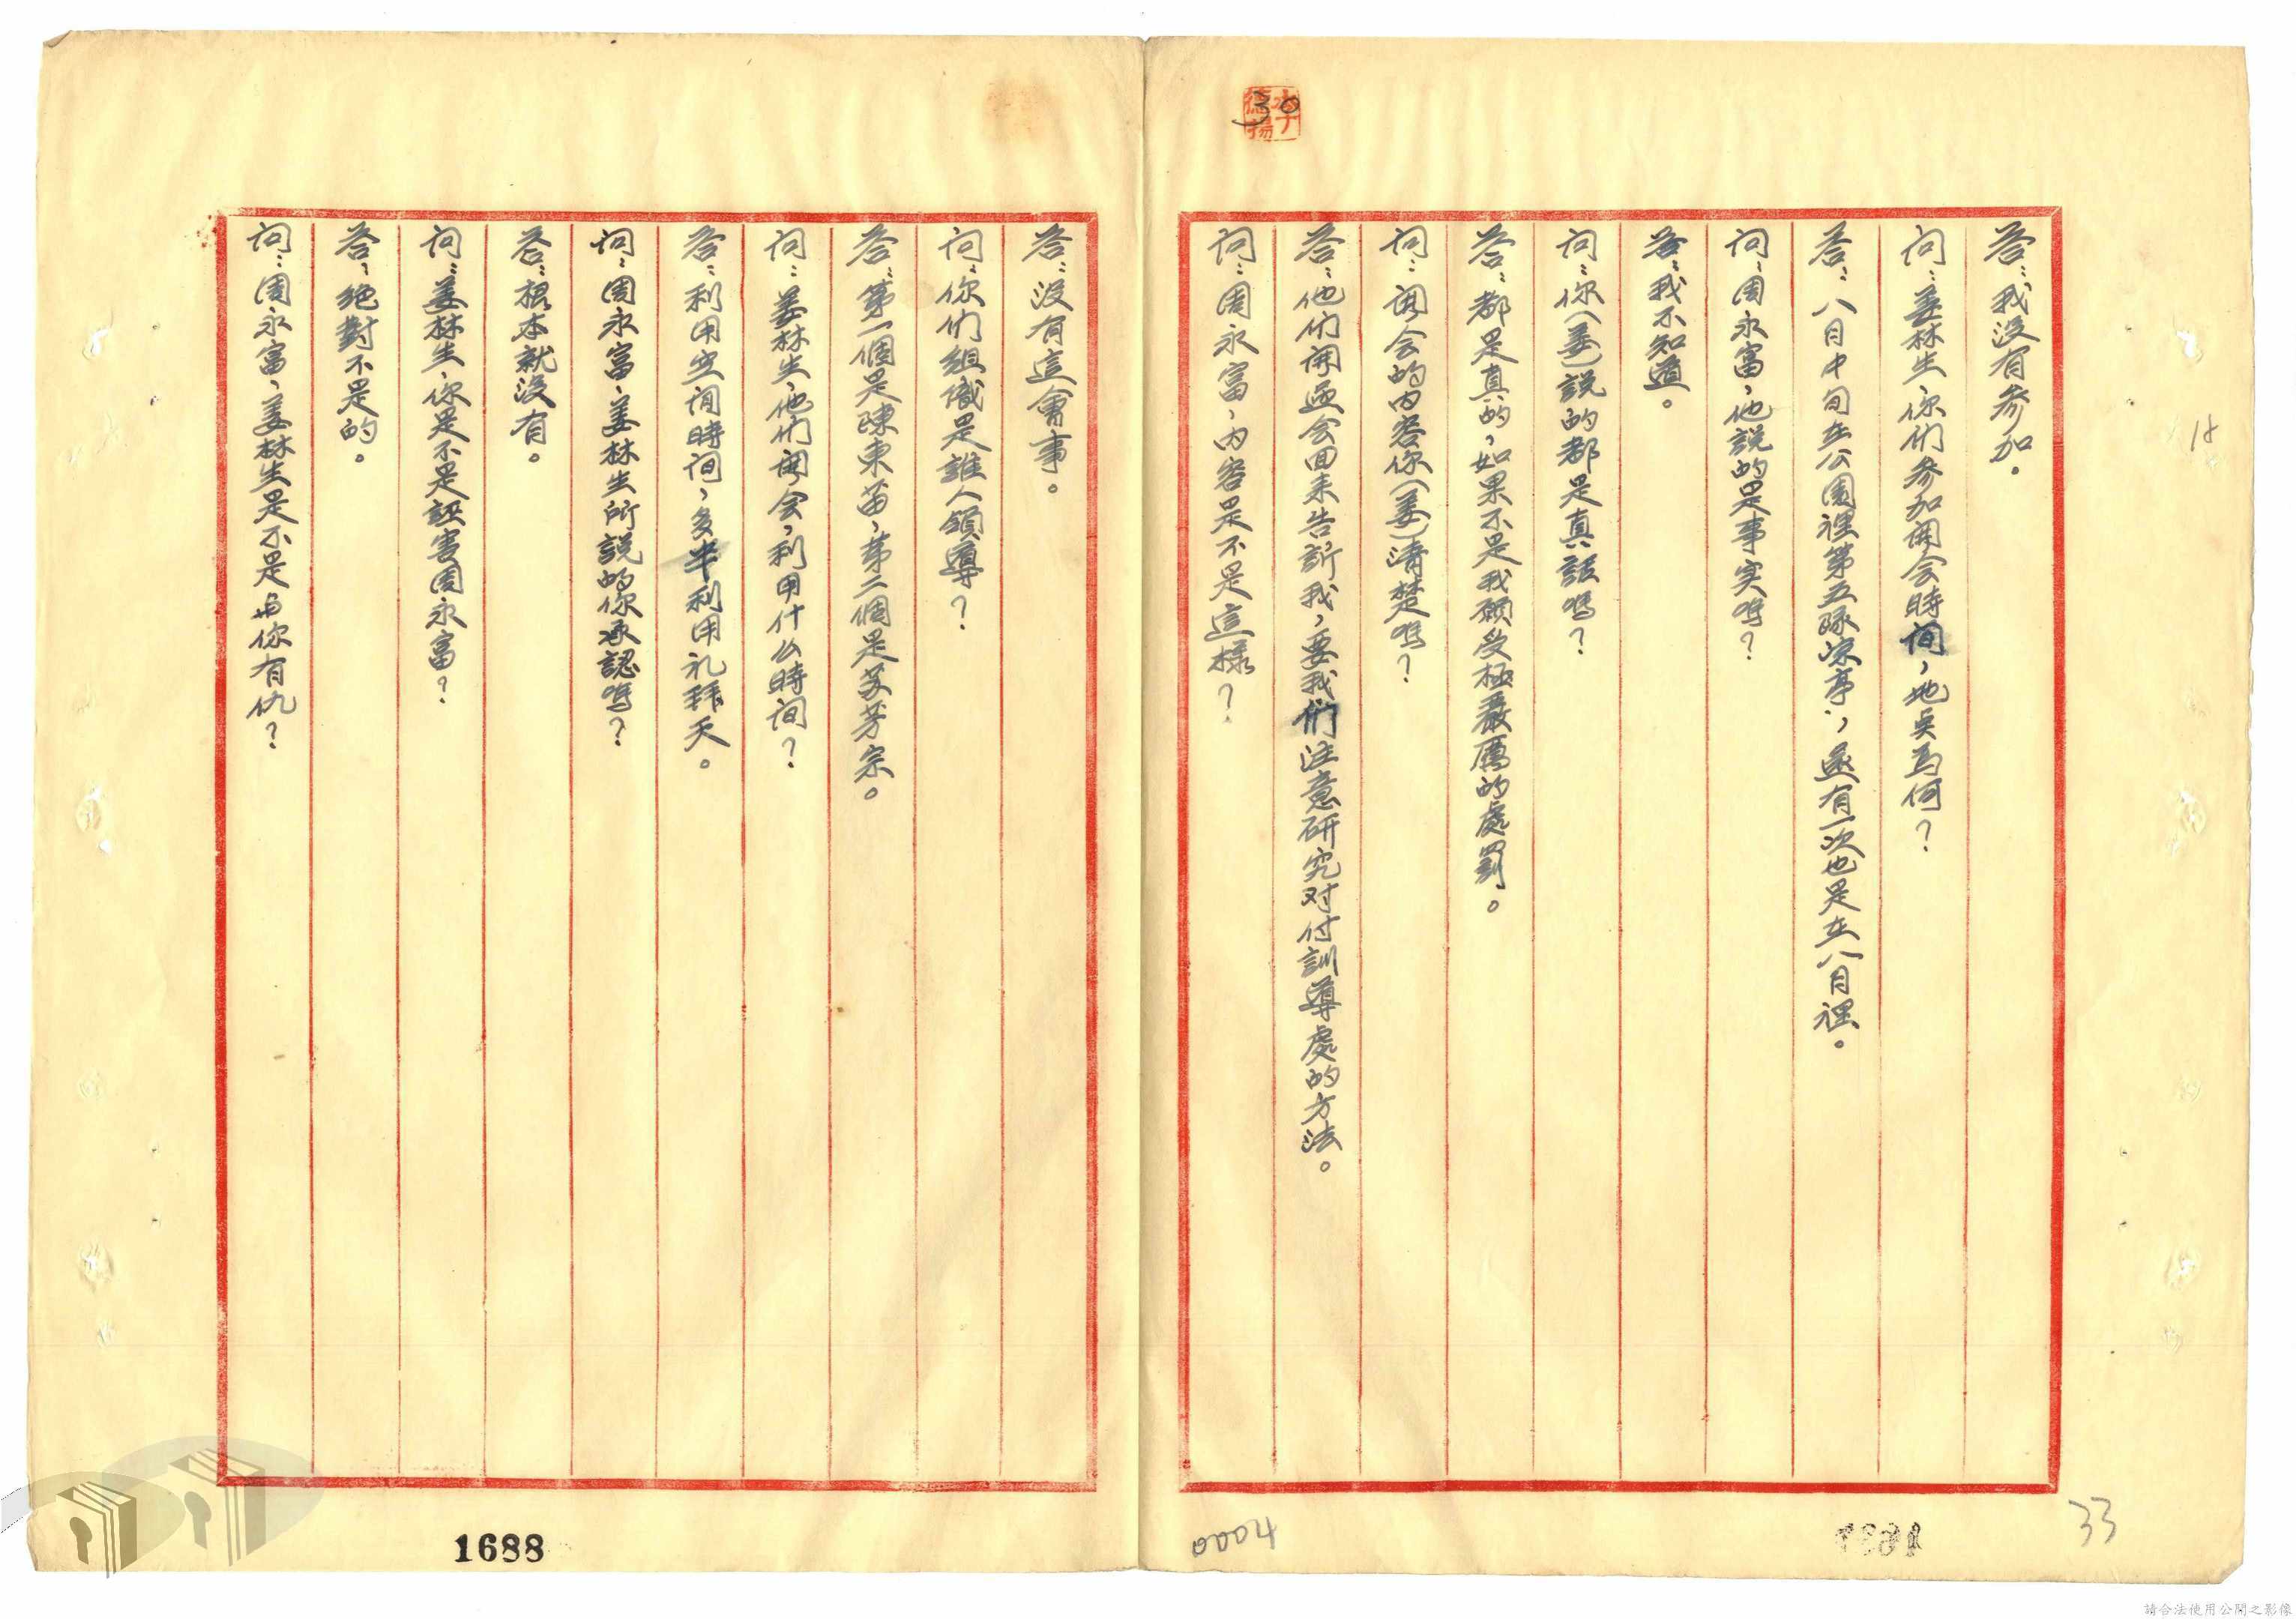 答：我沒有参加。
问：姜林生，你们参加開会時间，地奌為何？
答：八月中旬在公園裡第五隊凉亭，還有一次也是在八月裡。
问：周永富，他說的是事实嗎？
答：我不知道。
问：你（姜）說的都是真話嗎？
答：都是真的，如果不是我願受極嚴厲的處罰。
问：開会的内容你（姜）清楚嗎？
答：他们開過会回来告訴我，要我们注意研究对付訓導處的方法。
问：周永富，内容是不是這樣？
答：没有這會事。
问：你们組織是誰人領導？
答：第一個是陳東苗，第二個是芗芳宗。
问：姜林生，他们開会，利用什么時间？
答：利用空间時间，多半利用礼拜天。
问：周永富，姜林生所説的你承認嗎？
答：根本就没有。
问：姜林生，你是不是誣害周永富？
答：絕對不是的。
问：周永富，姜林生是不是与你有仇？
李德揚
30
18
33
0004
1688
請合法使用公開之影像